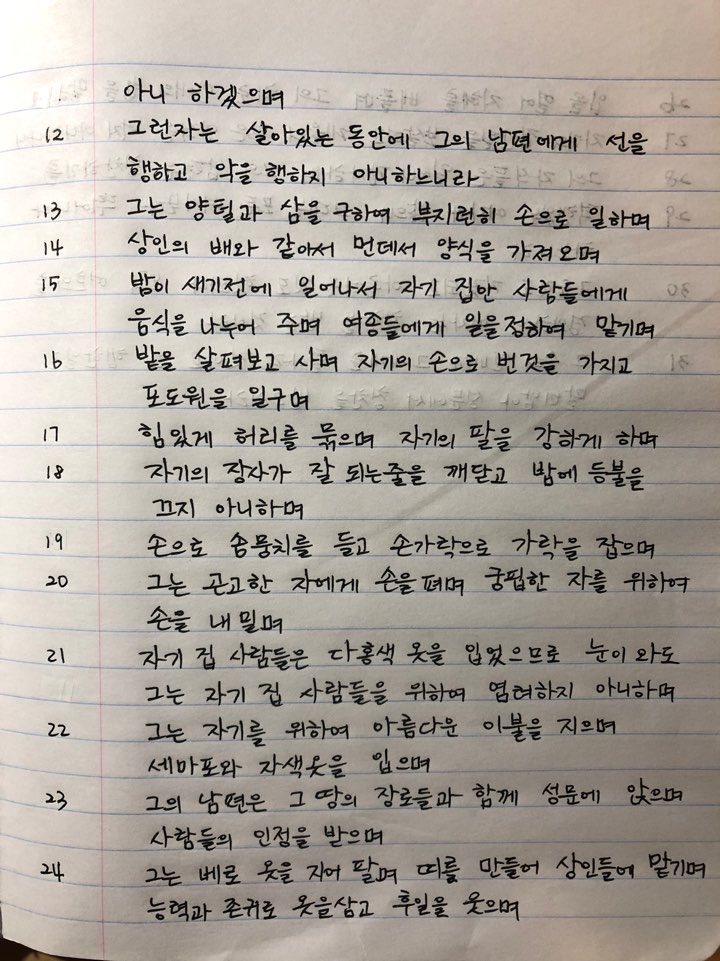 아니 하겠으며
12 그런자는 살아있는 동안에 그의 남편에게 선을
행하고 악을 행하지 아니하느니라
13 그는 양털과 삼을 구하여 부지런히 손으로 일하며
14 상인의 배와 같아서 먼데서 양식을 가져오며
15 밤이 새기전에 일어나서 자기 집안 사람들에게
음식을 나누어 주며 여종들에게 일을정하여 맡기며
16 밭을 살펴보고 사며 자기의 손으로 번것을 가지고
포도원을 일구며
17 힘있게 허리를 묶으며 자기의 팔을 강하게 하며
18 자기의 장사가 잘 되는줄을 깨닫고 밤에 등불을
끄지 아니하며
19 손으로 솜뭉치를 들고 손가락으로 가락을 잡으며
20 그는 곤고한 자에게 손을펴며 궁핍한 자를 위하여
손을 내밀며
21 자기 집 사람들은 다홍색 옷을 입었으므로 눈이 와도
그는 자기 집 사람들을 위하여 염려하지 아니하며
22 그는 자기를 위하여 아름다운 이불을 지으며
세마포와 자색옷을 입으며
23 그의 남편은 그 땅의 장로들과 함께 성문에 앉으며
사람들의 인정을 받으며
24 그는 베로 옷을 지어 팔며 띠를 만들어 상인들에 맡기며
능력과 존귀로 옷을삼고 후일을 웃으며